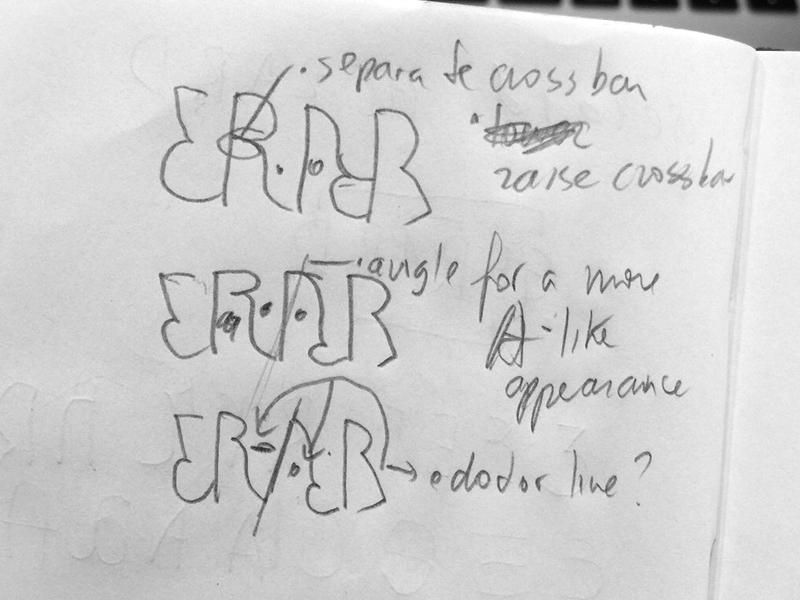 ERAR
• separate crossbar
• raise crossbar
ERAR
• angle for a more
A-like
appearance
ERAR
• dod or line?